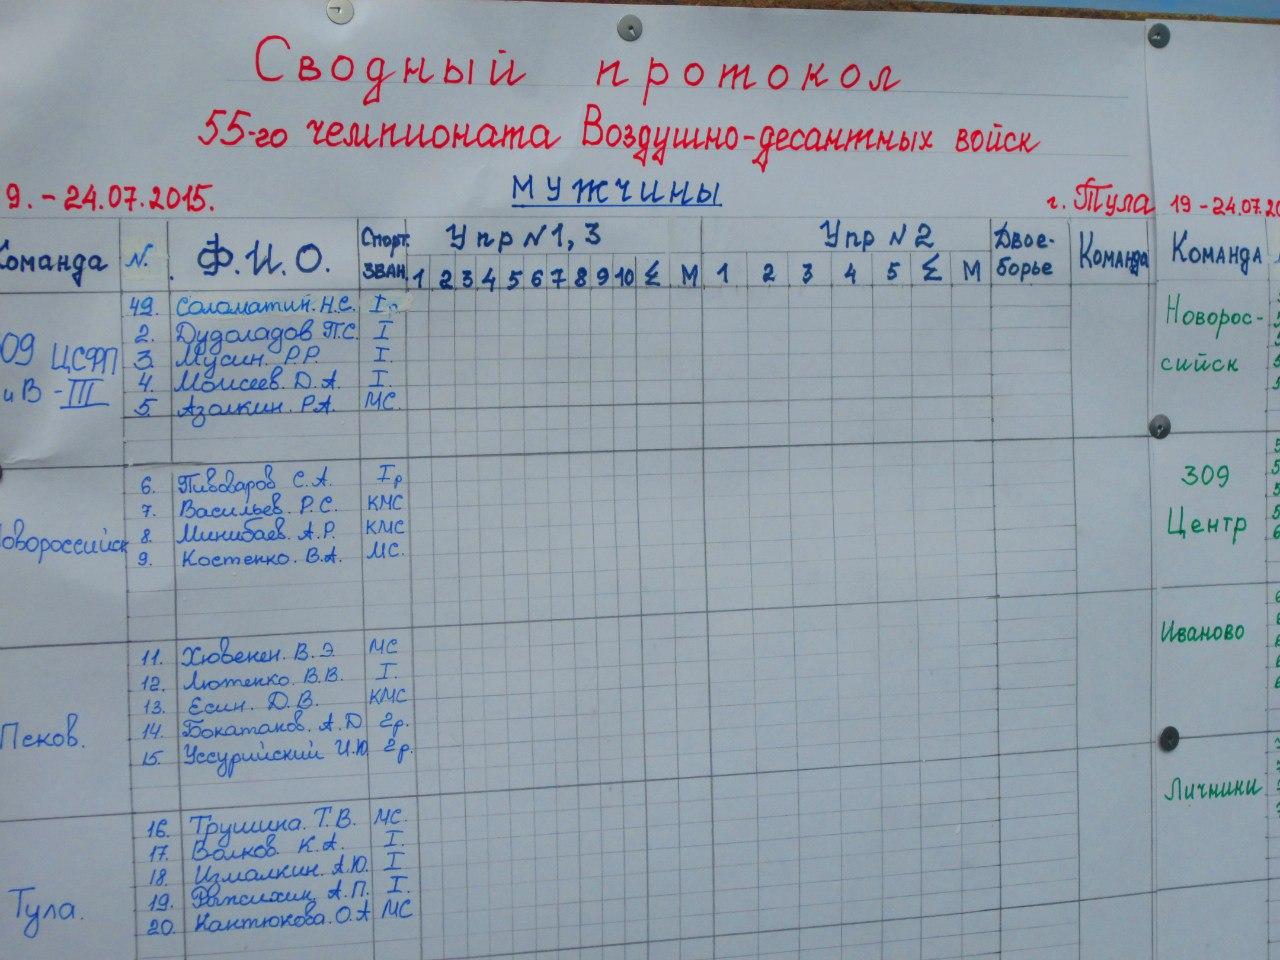 Сводный протокол
55-го чемпионата Воздушно-десантных войск
9. - 24.07.2015. мужчины г. Тула 19 - 24.07.20
Команда N. Ф.И.О. Спорт. зван. Упр N 1, 3 Упр N 2 Двое- Команда Команда
1 2 3 4 5 6 7 8 9 10 Σ М 1 2 3 4 5 Σ М борье
49. Соломатин. Н.С. I р
09 ЦСФП 2. Дудоладов П.С. I
3. Мусин. Р.Р. I.
и В - III 4. Моисеев. Д.А. I.
5 Азолкин. Р.А. МС.
6. Пивоваров С.А. I р
7. Васильев. Р.С. КМС
овороссийск 8. Минибаев. А.Р. КМС
9. Костенко. В.А. МС.
11. Хювенен. В.Э. МС
12. Лютенко. В.В. I.
13. Есин. Д.В. КМС
Псков. 14. Бокатанов. А.Д 2р.
15. Уссурийский И.Ю 2р.
16. Трушина. Т.В. МС.
17. Волков. К.А. I.
18. Измалкин. А.Ю. I
Тула. 19. А.П. I.
20. Кантюкова. О.А МС
Новорос-
сийск
309
Центр
Иваново
Личники